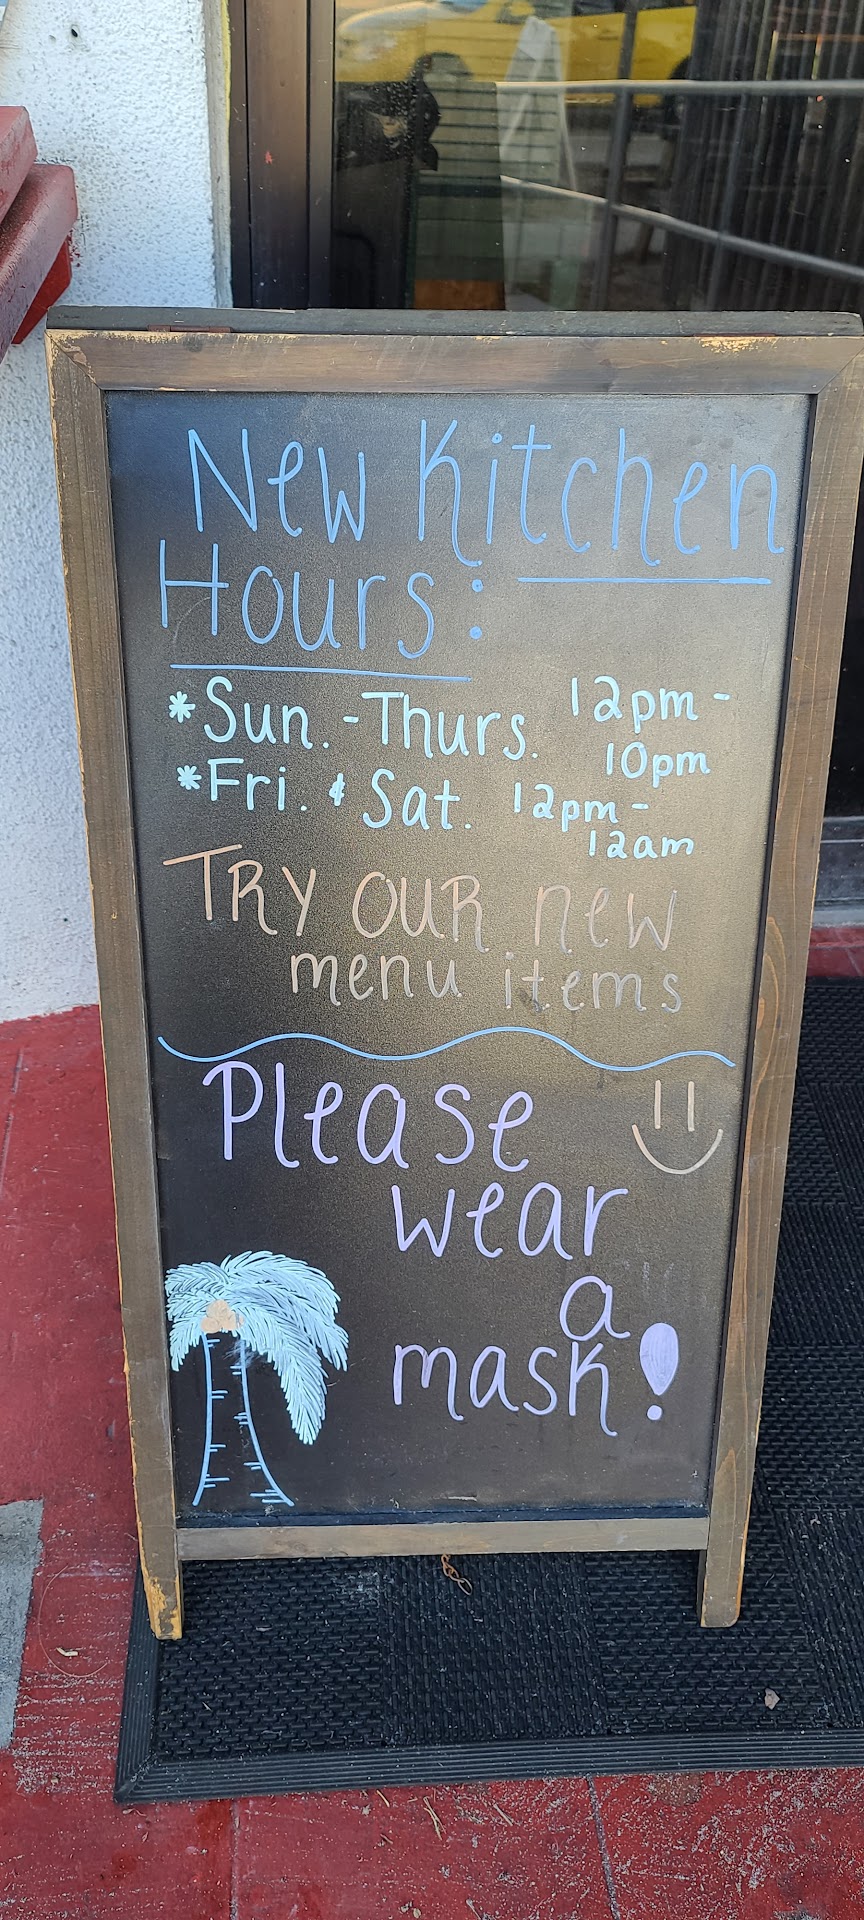 New Kitchen
Hours:
*Sun.-Thurs. 12pm-
10pm
*Fri. & Sat. 12pm-
12am
TRY OUR new
menu items
Please
wear
a
mask!